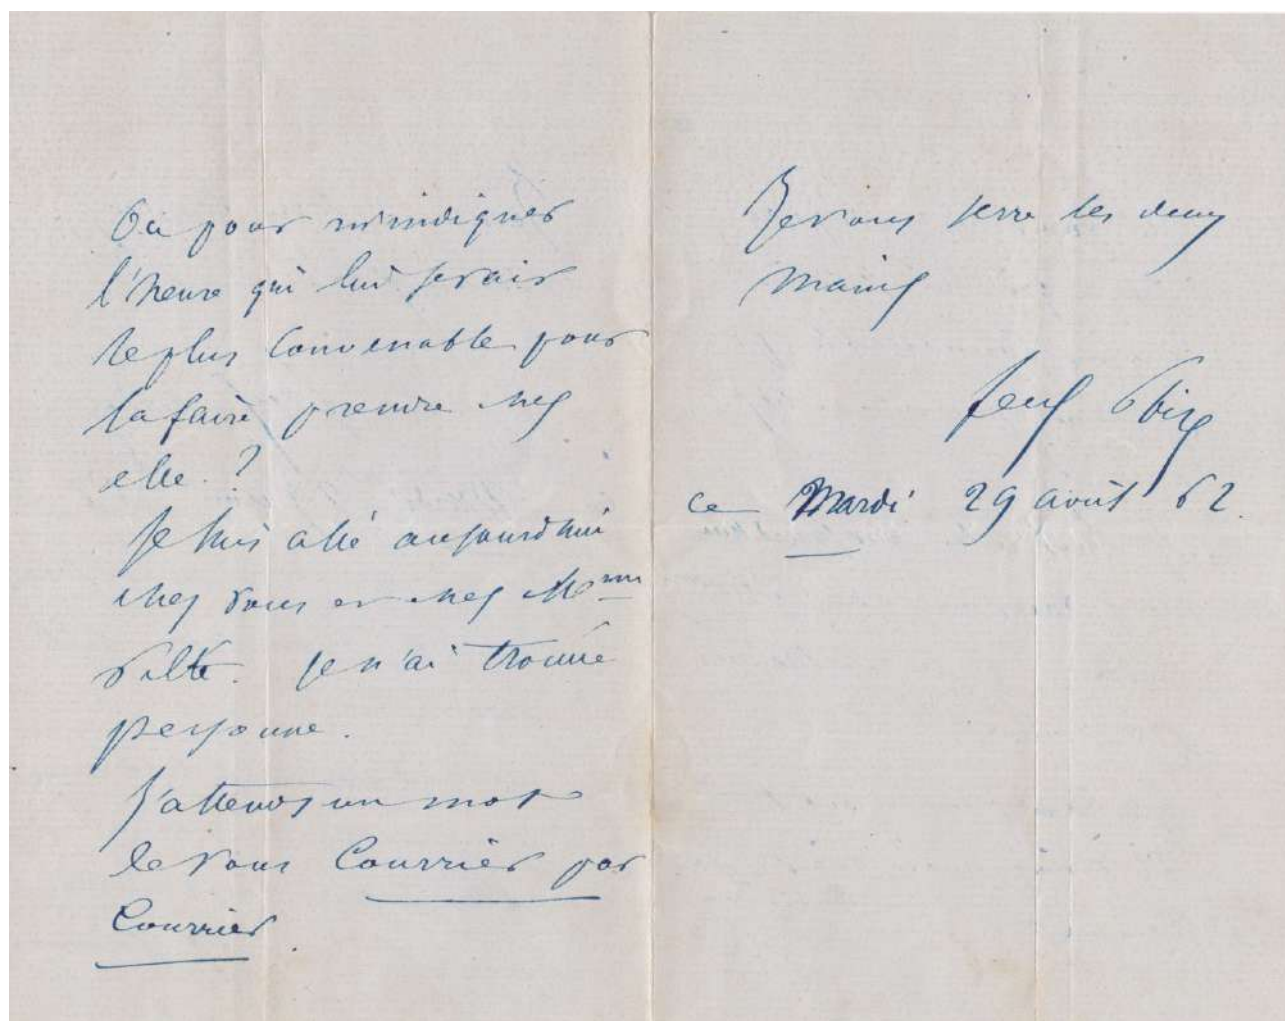 Ou pour m'indiquer
l'heure qui lui serais
le plus convenable pour
la faire prendre chez
elle ?
Je suis allé aujourd'hui
chez vous et chez Mme
Je n'ai trouvé
personne.
J'attends un mot
de vous Courrier par
Courrier.
Je vous serre les deux
mains
ce Mardi 29 août 62.